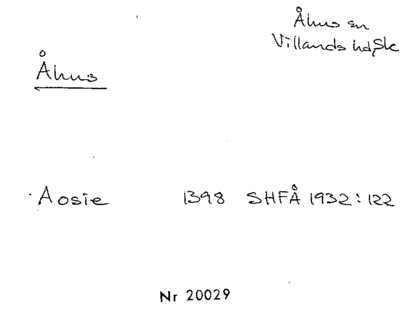 Åhus sn
Villands hd, Sk
Åhus
Aosie 1398 SHFÅ 1932:122
Nr 20029